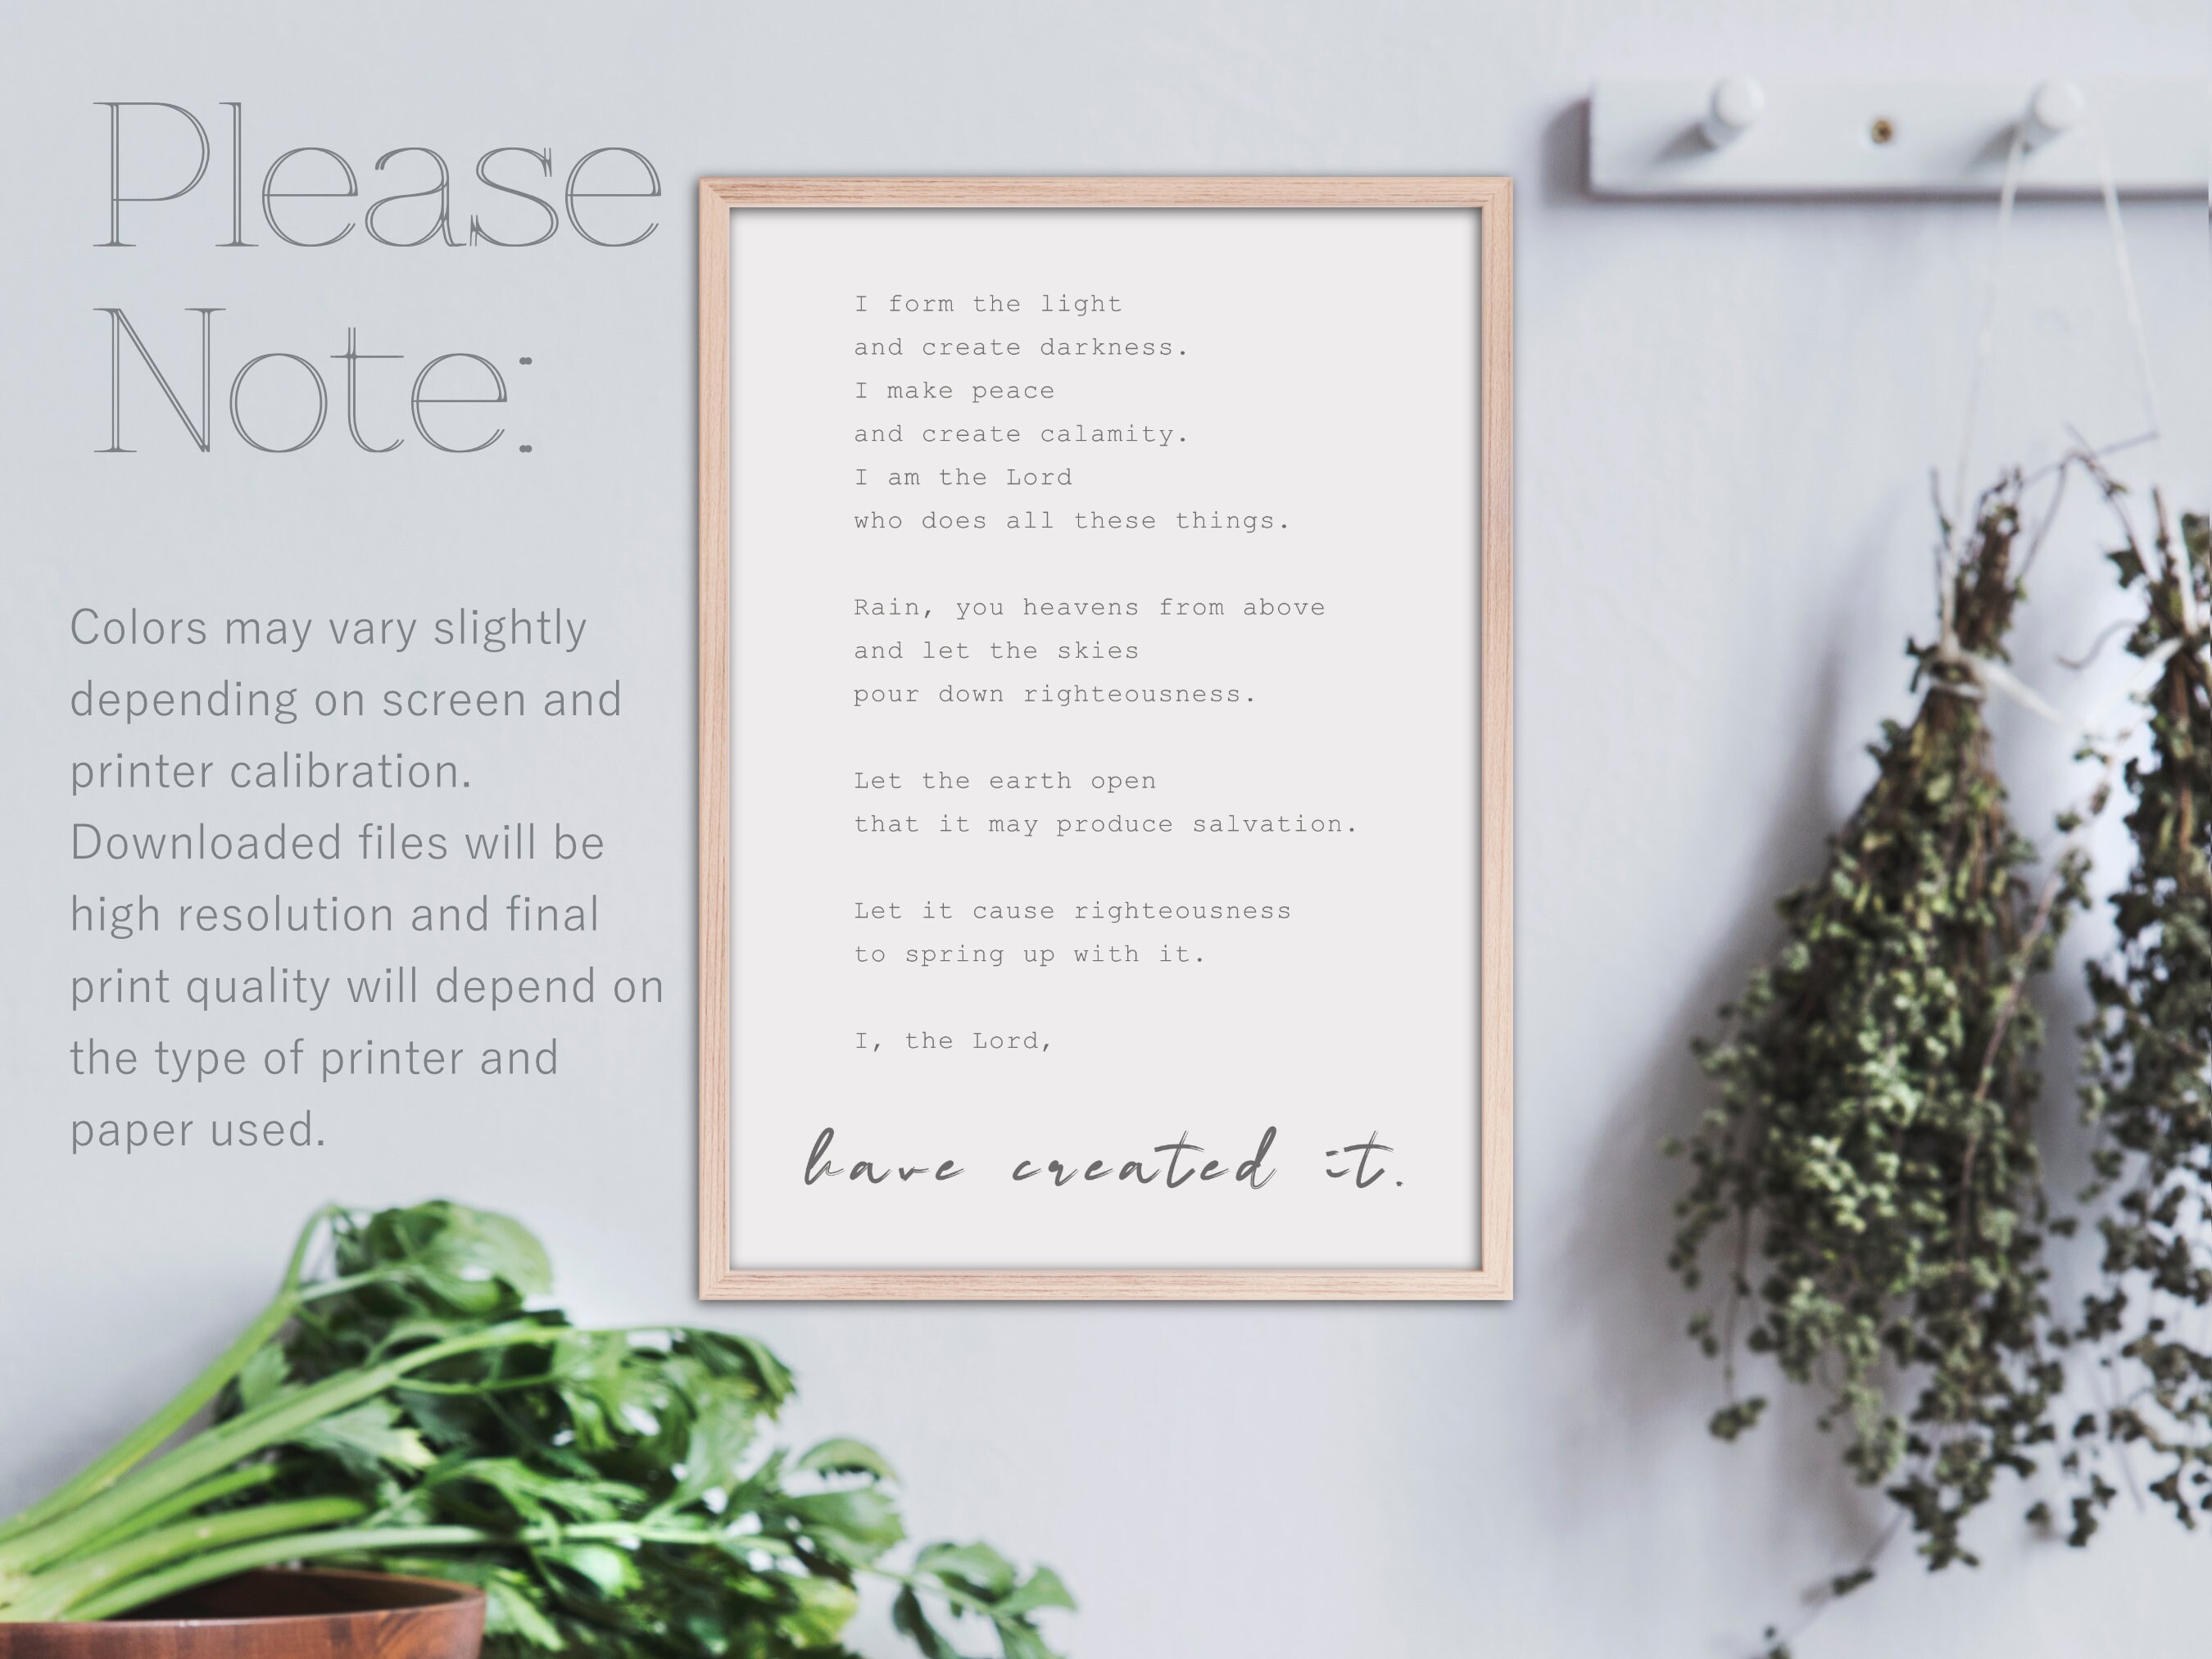 Please
Note:
Colors may vary slightly
depending on screen and
printer calibration.
Downloaded files will be
high resolution and final
print quality will depend on
the type of printer and
paper used.
I form the light
and create darkness.
I make peace
and create calamity.
I am the Lord
who does all these things.
Rain, you heavens from above
and let the skies
pour down righteousness.
Let the earth open
that it may produce salvation.
Let it cause righteousness
to spring up with it.
I, the Lord,
have created it.